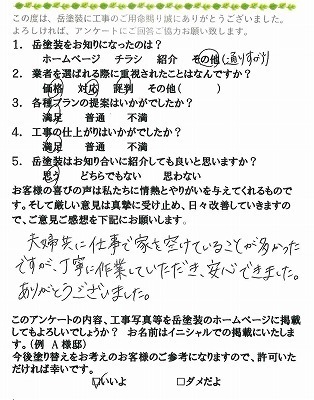 この度は、岳塗装に工事のご用命賜り誠にありがとうございました。
よろしければ、アンケートにご回答ご協力お願い致します。
1. 岳塗装をお知りになったのは?
ホームページ チラシ 紹介 その他(通りすがり)
2. 業者を選ばれる際に重視されたことはなんですか?
価格 対応 評判 その他( )
3. 各種プランの提案はいかがでしたか?
満足 普通 不満
4. 工事の仕上がりはいかがでしたか?
満足 普通 不満
5. 岳塗装はお知り合いに紹介しても良いと思いますか?
思う どちらでもない 思わない
お客様の喜びの声は私たちに情熱とやりがいを与えてくれるものです。そして厳しい意見は真摯に受け止め、日々改善していきますので、ご意見ご感想を下記にお願いします。
夫婦共に仕事で家を空けていることが多かった
ですが、丁寧に作業していただき、安心できました。
ありがとうございました。
このアンケートの内容、工事写真等を岳塗装のホームページに掲載
してもよろしいでしょうか? お名前はイニシャルでの掲載にいたしま
す。(例 A様邸)
今後塗り替えをお考えのお客様のご参考になりますので、許可いた
だければ幸いです。
☑いいよ □ダメだよ